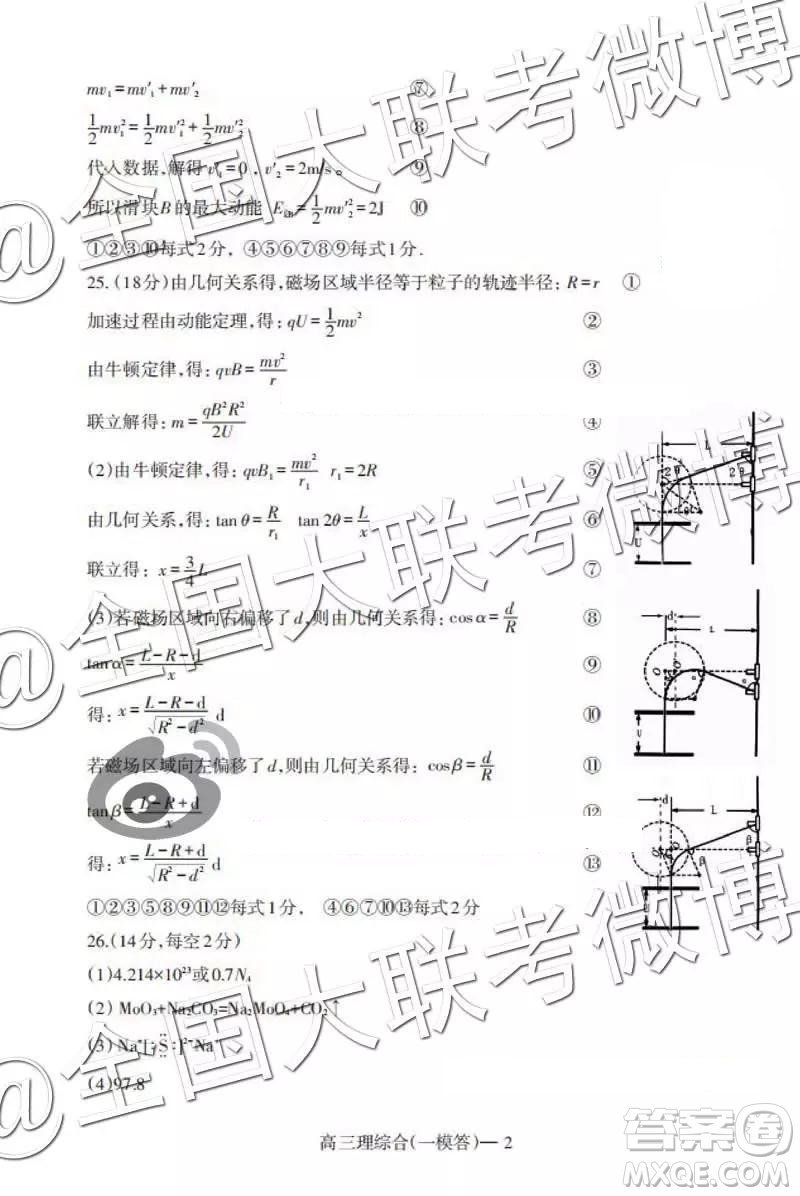 mv₁=mv′₁+mv′₂ ⑦
½mv₁²=½mv′₁²+½mv′₂² ⑧
代入数据,解得 v′₁=0，v′₂=2m/s。 ⑨
所以滑块B的最大动能 EₖB=½mv′₂²=2J ⑩
①②③⑩每式2分，④⑤⑥⑦⑧⑨每式1分.
25.(18分)由几何关系得,磁场区域半径等于粒子的轨迹半径：R=r ①
加速过程由动能定理,得：qU=½mv² ②
由牛顿定律,得：qvB=mv²/r ③
联立解得：m=qB²R²/2U ④
(2)由牛顿定律,得：qvB₁=mv²/r₁ r₁=2R ⑤
由几何关系,得：tanθ=R/r₁ tan2θ=L/x ⑥
联立得：x=¾L ⑦
(3)若磁场区域向右偏移了d,则由几何关系得：cosα=d/R ⑧
tanα=(L-R-d)/x ⑨
得：x=(L-R-d)/√(R²-d²) d ⑩
若磁场区域向左偏移了d,则由几何关系得：cosβ=d/R ⑪
tanβ=(L-R+d)/x ⑫
得：x=(L-R+d)/√(R²-d²) d ⑬
①②③⑤⑧⑨⑪⑫每式1分， ④⑥⑦⑩⑬每式2分
26.(14分,每空2分)
(1)4.214×10²³或0.7Nₐ
(2) MoO₃+Na₂CO₃=Na₂MoO₄+CO₂↑
(3) Na⁺[:S̤̈:]²⁻Na⁺
(4)97.8
高三理综合(一模答)— 2
L
2θ
2θ
θ
U
d
L
O
O
α
α
U
d
L
O
O
β
β
U
@全国大联考微博
@全国大联考微博
@全国大联考微博
答案圈
MXQE.COM